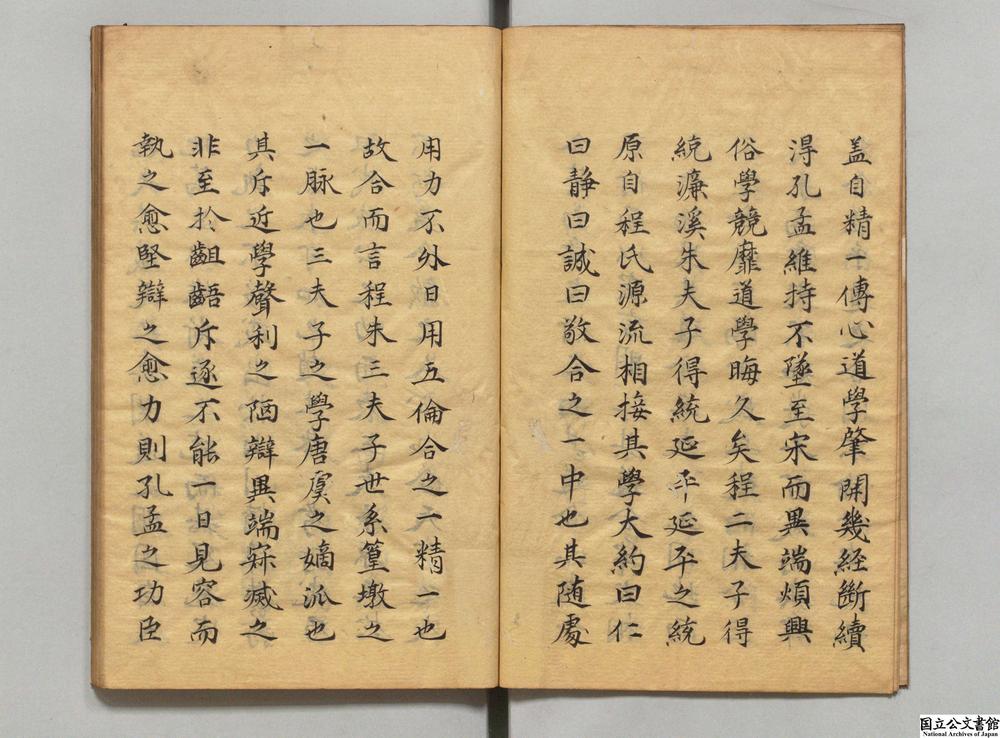 蓋自精一傳心道學肇開幾経斷續
淂孔孟維持不墜至宋而異端煩興
俗學競靡道學晦久矣程二夫子得
統濂溪朱夫子得統延平延平之統
原自程氏源流相接其學大約曰仁
曰静曰誠曰敬合之一中也其随處
用力不外日用五倫合之一精一也
故合而言程朱三夫子世系篁墩之
一脉也三夫子之學唐虞之嫡泒也
其斥近學聲利之陋辯異端寂滅之
非至扵齟齬斥逐不能一日見容而
執之愈堅辯之愈力則孔孟之功臣
国立公文書館
National Archives of Japan